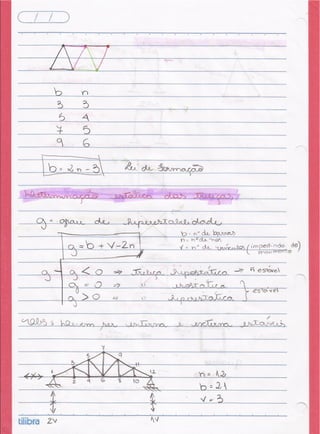 b n
3 3
5 4
7 5
9 6
b = 2n - 3 Lei de formação
Determinação estática das treliças
g = grau de hiperestaticidade
b - n° de barras
n - n° de nós
g = b + v - 2n
v - n° de vínculos (impedindo do movimento)
g < 0 → treliça hipostática → ñ estável
g = 0 → " isostática
estável
g > 0 " " hiperestática
OBS: podem ser interna e externa estáveis
1 2 3 4 5 6 7 8 9 10 11 12
n = 12
b = 21
v = 3
tilibra 2V 1V